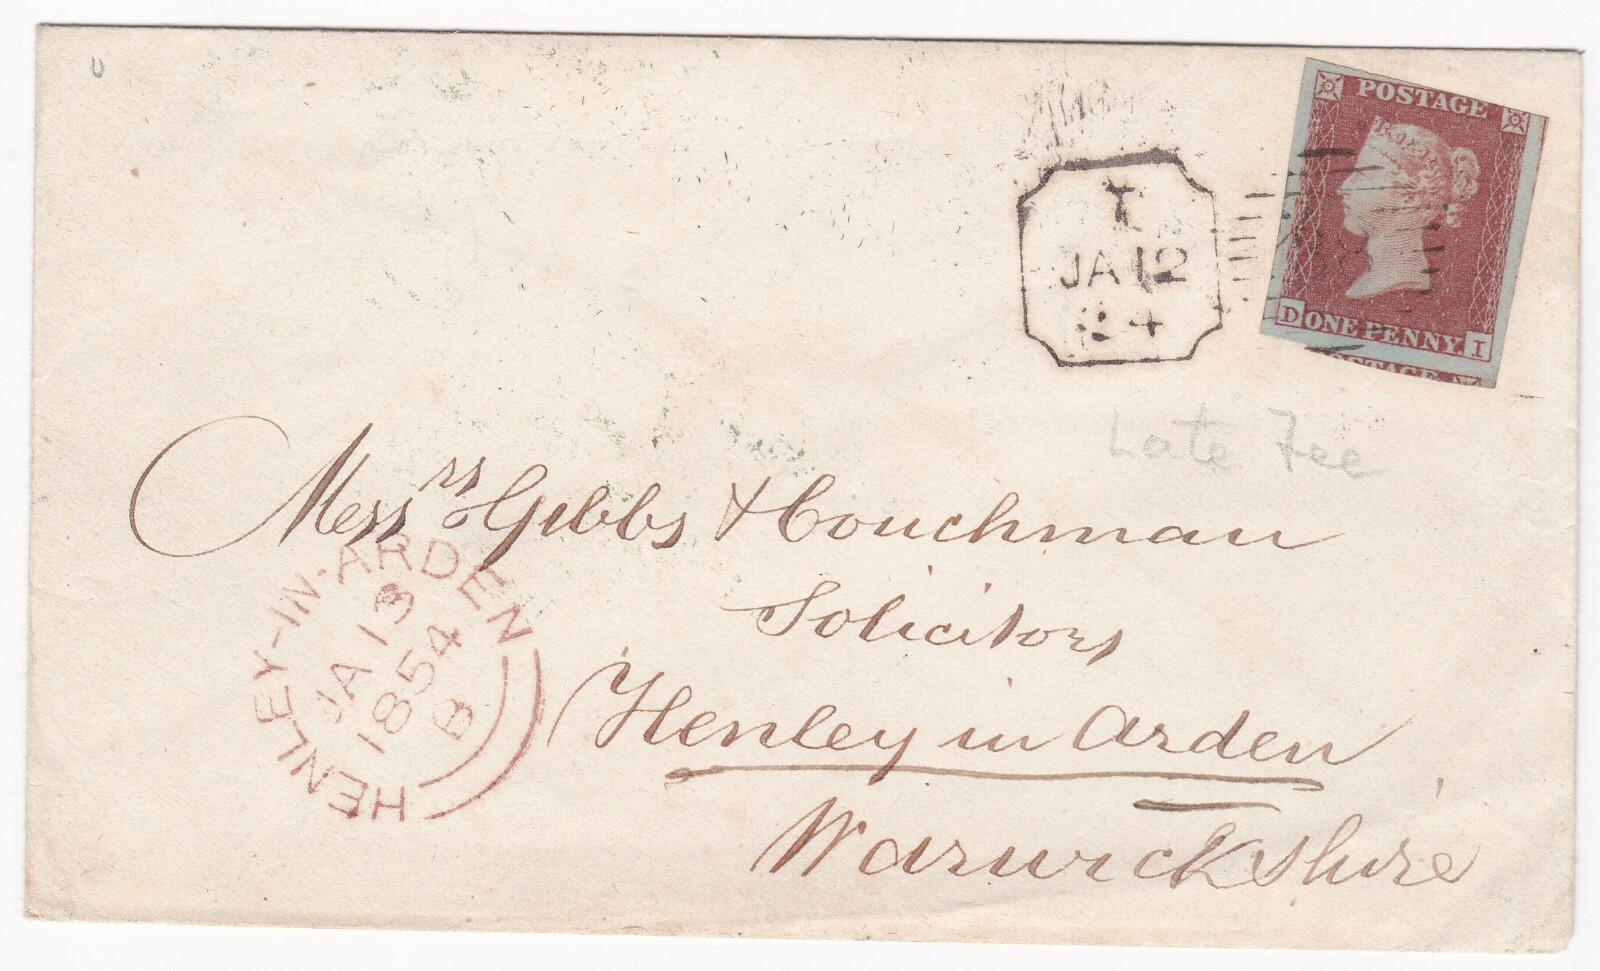 POSTAGE
D ONE PENNY. I
POSTAGE
T
JA 12
24
Late Fee
Messrs Gibbs & Couchman
Solicitors
Henley in Arden
Warwickshire
HENLEY-IN-ARDEN
JA 13
1854
B